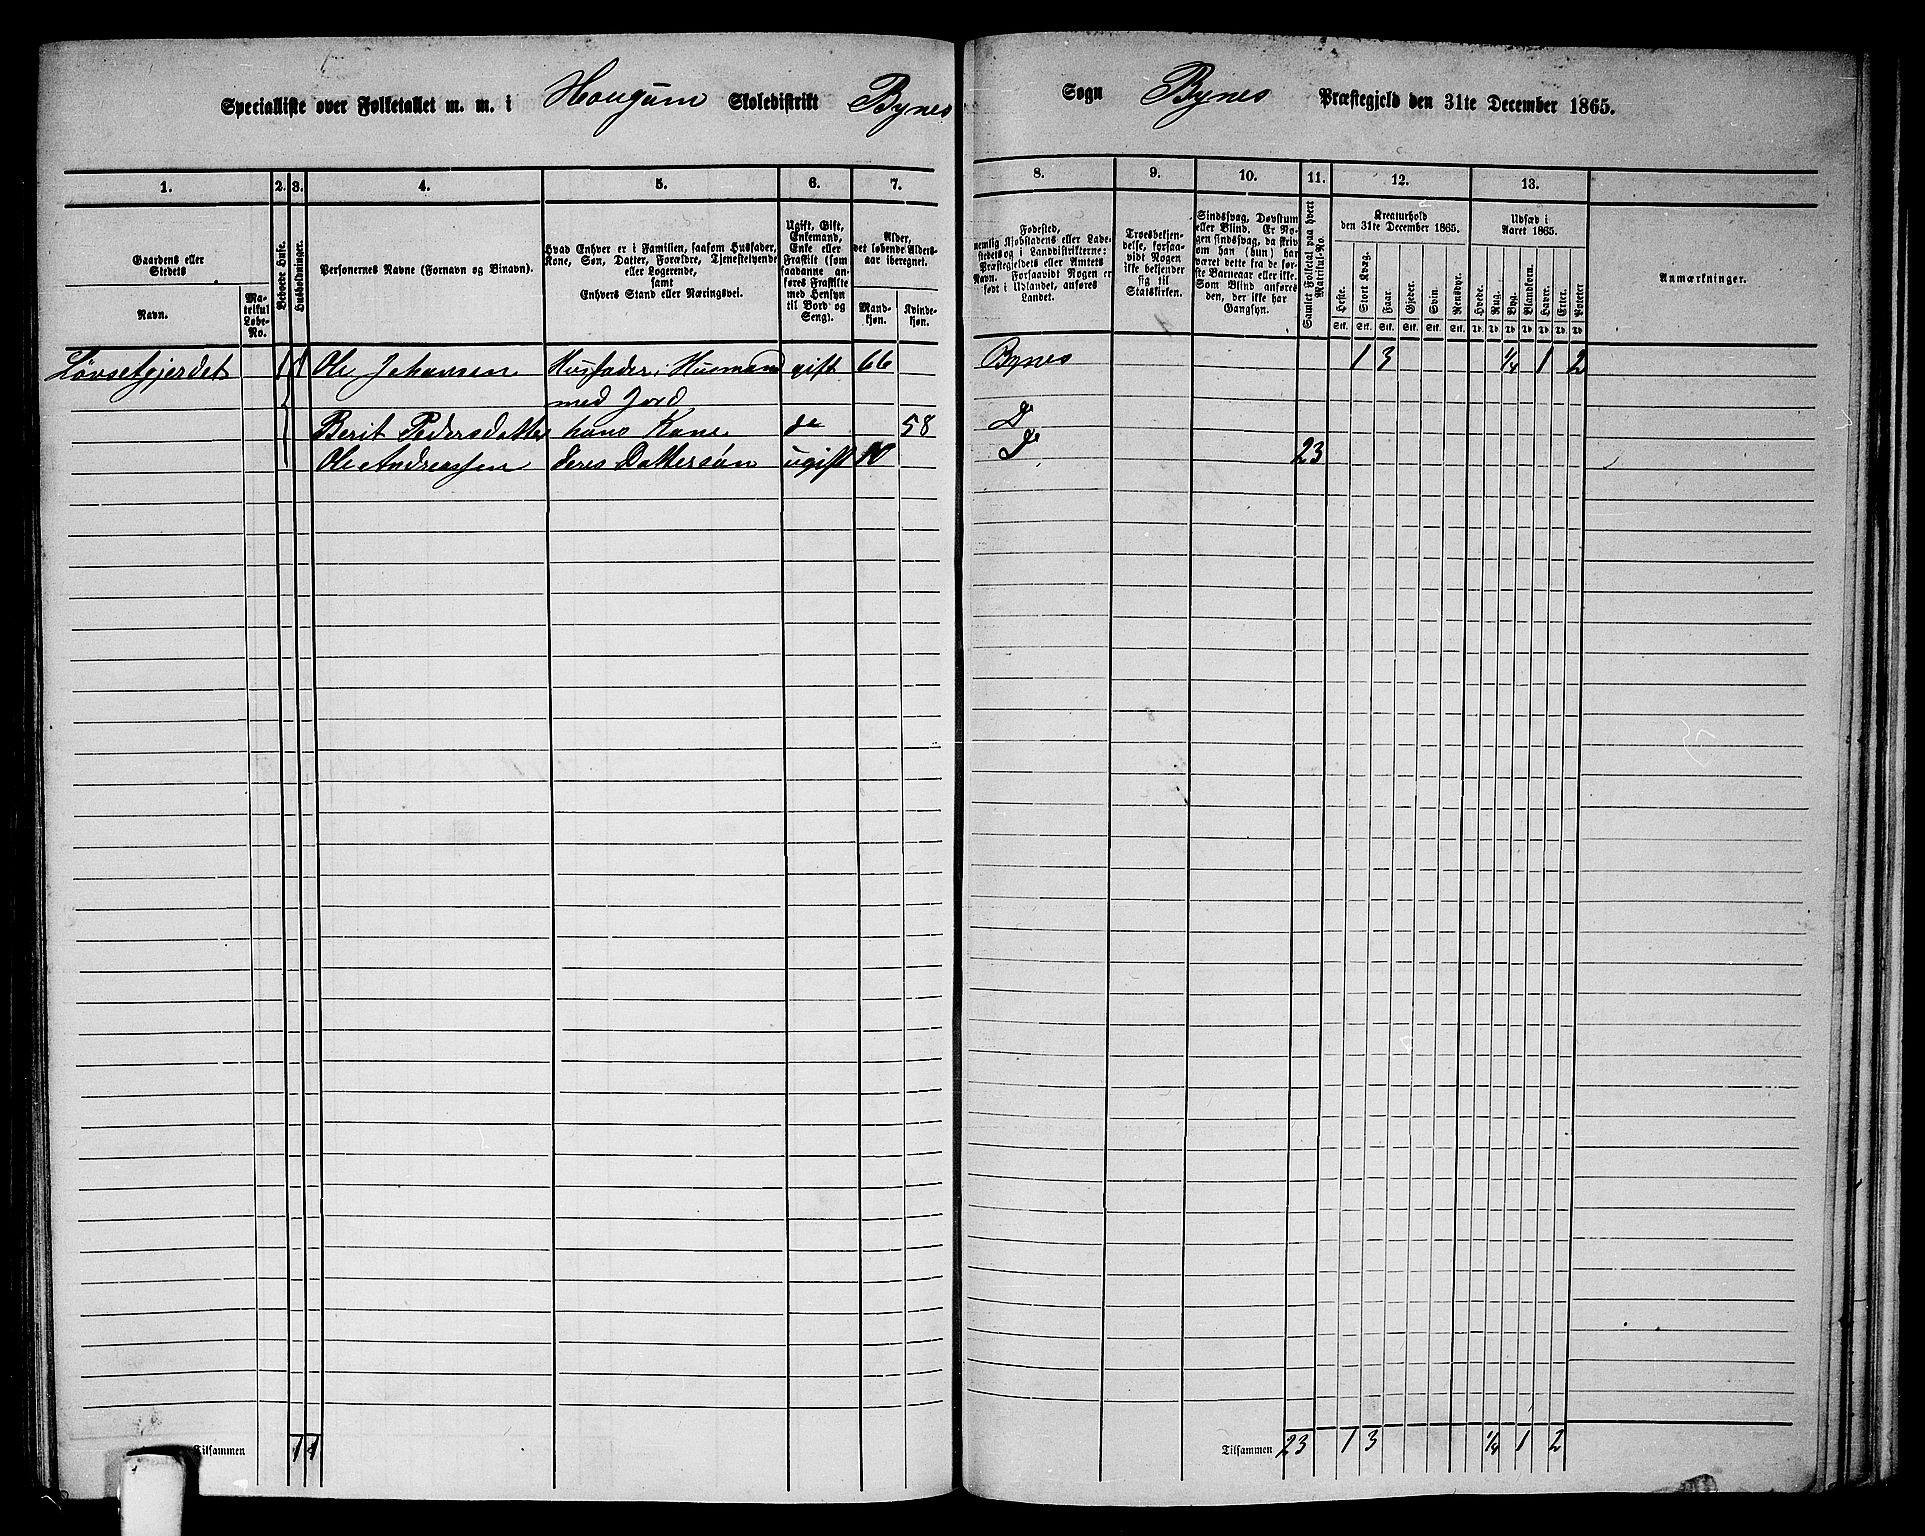 Specialliste over Folketallet m. m. i Hougum Skoledistrikt Bynes Sogn Bynes Præstegjeld den 31te December 1865.
1. 2. 3. 4. 5. 6. 7. 8. 9. 10. 11. 12. 13.
Gaardens eller Stedets
Navn.
Matrikul Løbe-No.
Beboede Huse.
Husholdninger.
Personernes Navne (Fornavn og Binavn).
Hvad Enhver er i Familien, saasom Husfader,
Kone, Søn, Datter, Forældre, Tjenestetyende
eller Logerende,
samt
Enhvers Stand eller Næringsvei.
Ugift, Gift,
Enkemand,
Enke eller
Fraskilt (som
saadanne an-
føres Fraskilte
med Hensyn
til Bord og
Seng).
Alder,
det løbende Alders-
aar iberegnet.
Mand-
kjøn.
Kvinde-
kjøn.
Fødested,
nemlig Kjøbstadens eller Lade-
stedets og i Landdistrikterne:
Præstegjeldets eller Amtets
Navn. Forsaavidt Nogen er
født i Udlandet, anføres
Landet.
Troesbekjen-
delse, forsaa-
vidt Nogen
ikke bekjender
sig til
Statskirken.
Sindssvag, Døvstum
eller Blind. Er No-
gen sindssvag, da skriv
om han (hun) har
været dette fra de før-
ste Barneaar eller ikke.
Som Blind anføres
den, der ikke har
Gangsyn.
Samlet Folketal paa hvert Matrikul-No.
Kreaturhold
den 31te December 1865.
Heste. Stort Kvæg. Faar. Gjeder. Svin. Rensdyr.
Stk. Stk. Stk. Stk. Stk. Stk.
Udsæd i
Aaret 1865.
Hvede. Rug. Byg. Blandkorn. Havre. Erter. Poteter
Td. Td. Td. Td. Td. Td. Td.
Anmærkninger.
Løvsetgjerdet 1 1 Ole Johansen Husfader, Husmand gift 66 Bynes 1 3 1/4 1 2
med Jord
Berit Pedersdatter hans Kone do 58 Do
Ole Andreassen deres Dattersøn ugift 10 Do 23
Tilsammen 1 1 Tilsammen 23 1 3 1/4 1 2